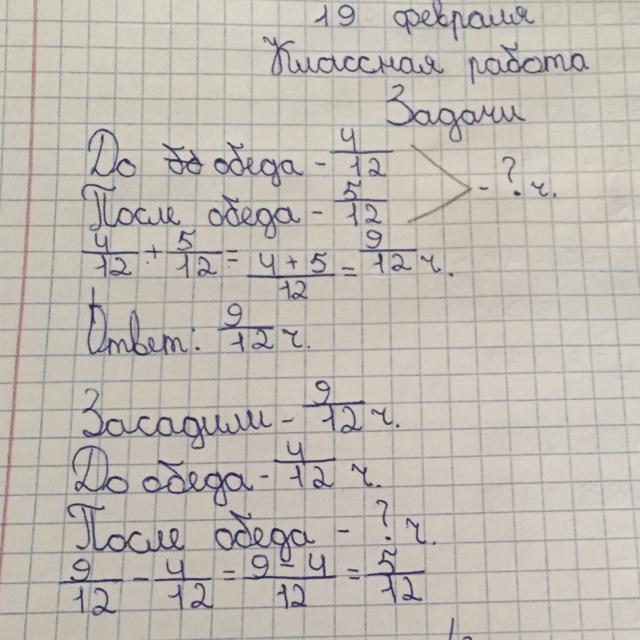 19 февраля
Классная работа
Задачи
До обеда - 4/12
После обеда - 5/12 - ? ч.
4/12 + 5/12 = 4+5/12 = 9/12 ч.
Ответ: 9/12 ч.
Засадили - 9/12 ч.
До обеда - 4/12 ч.
После обеда - ? ч.
9/12 - 4/12 = 9-4/12 = 5/12